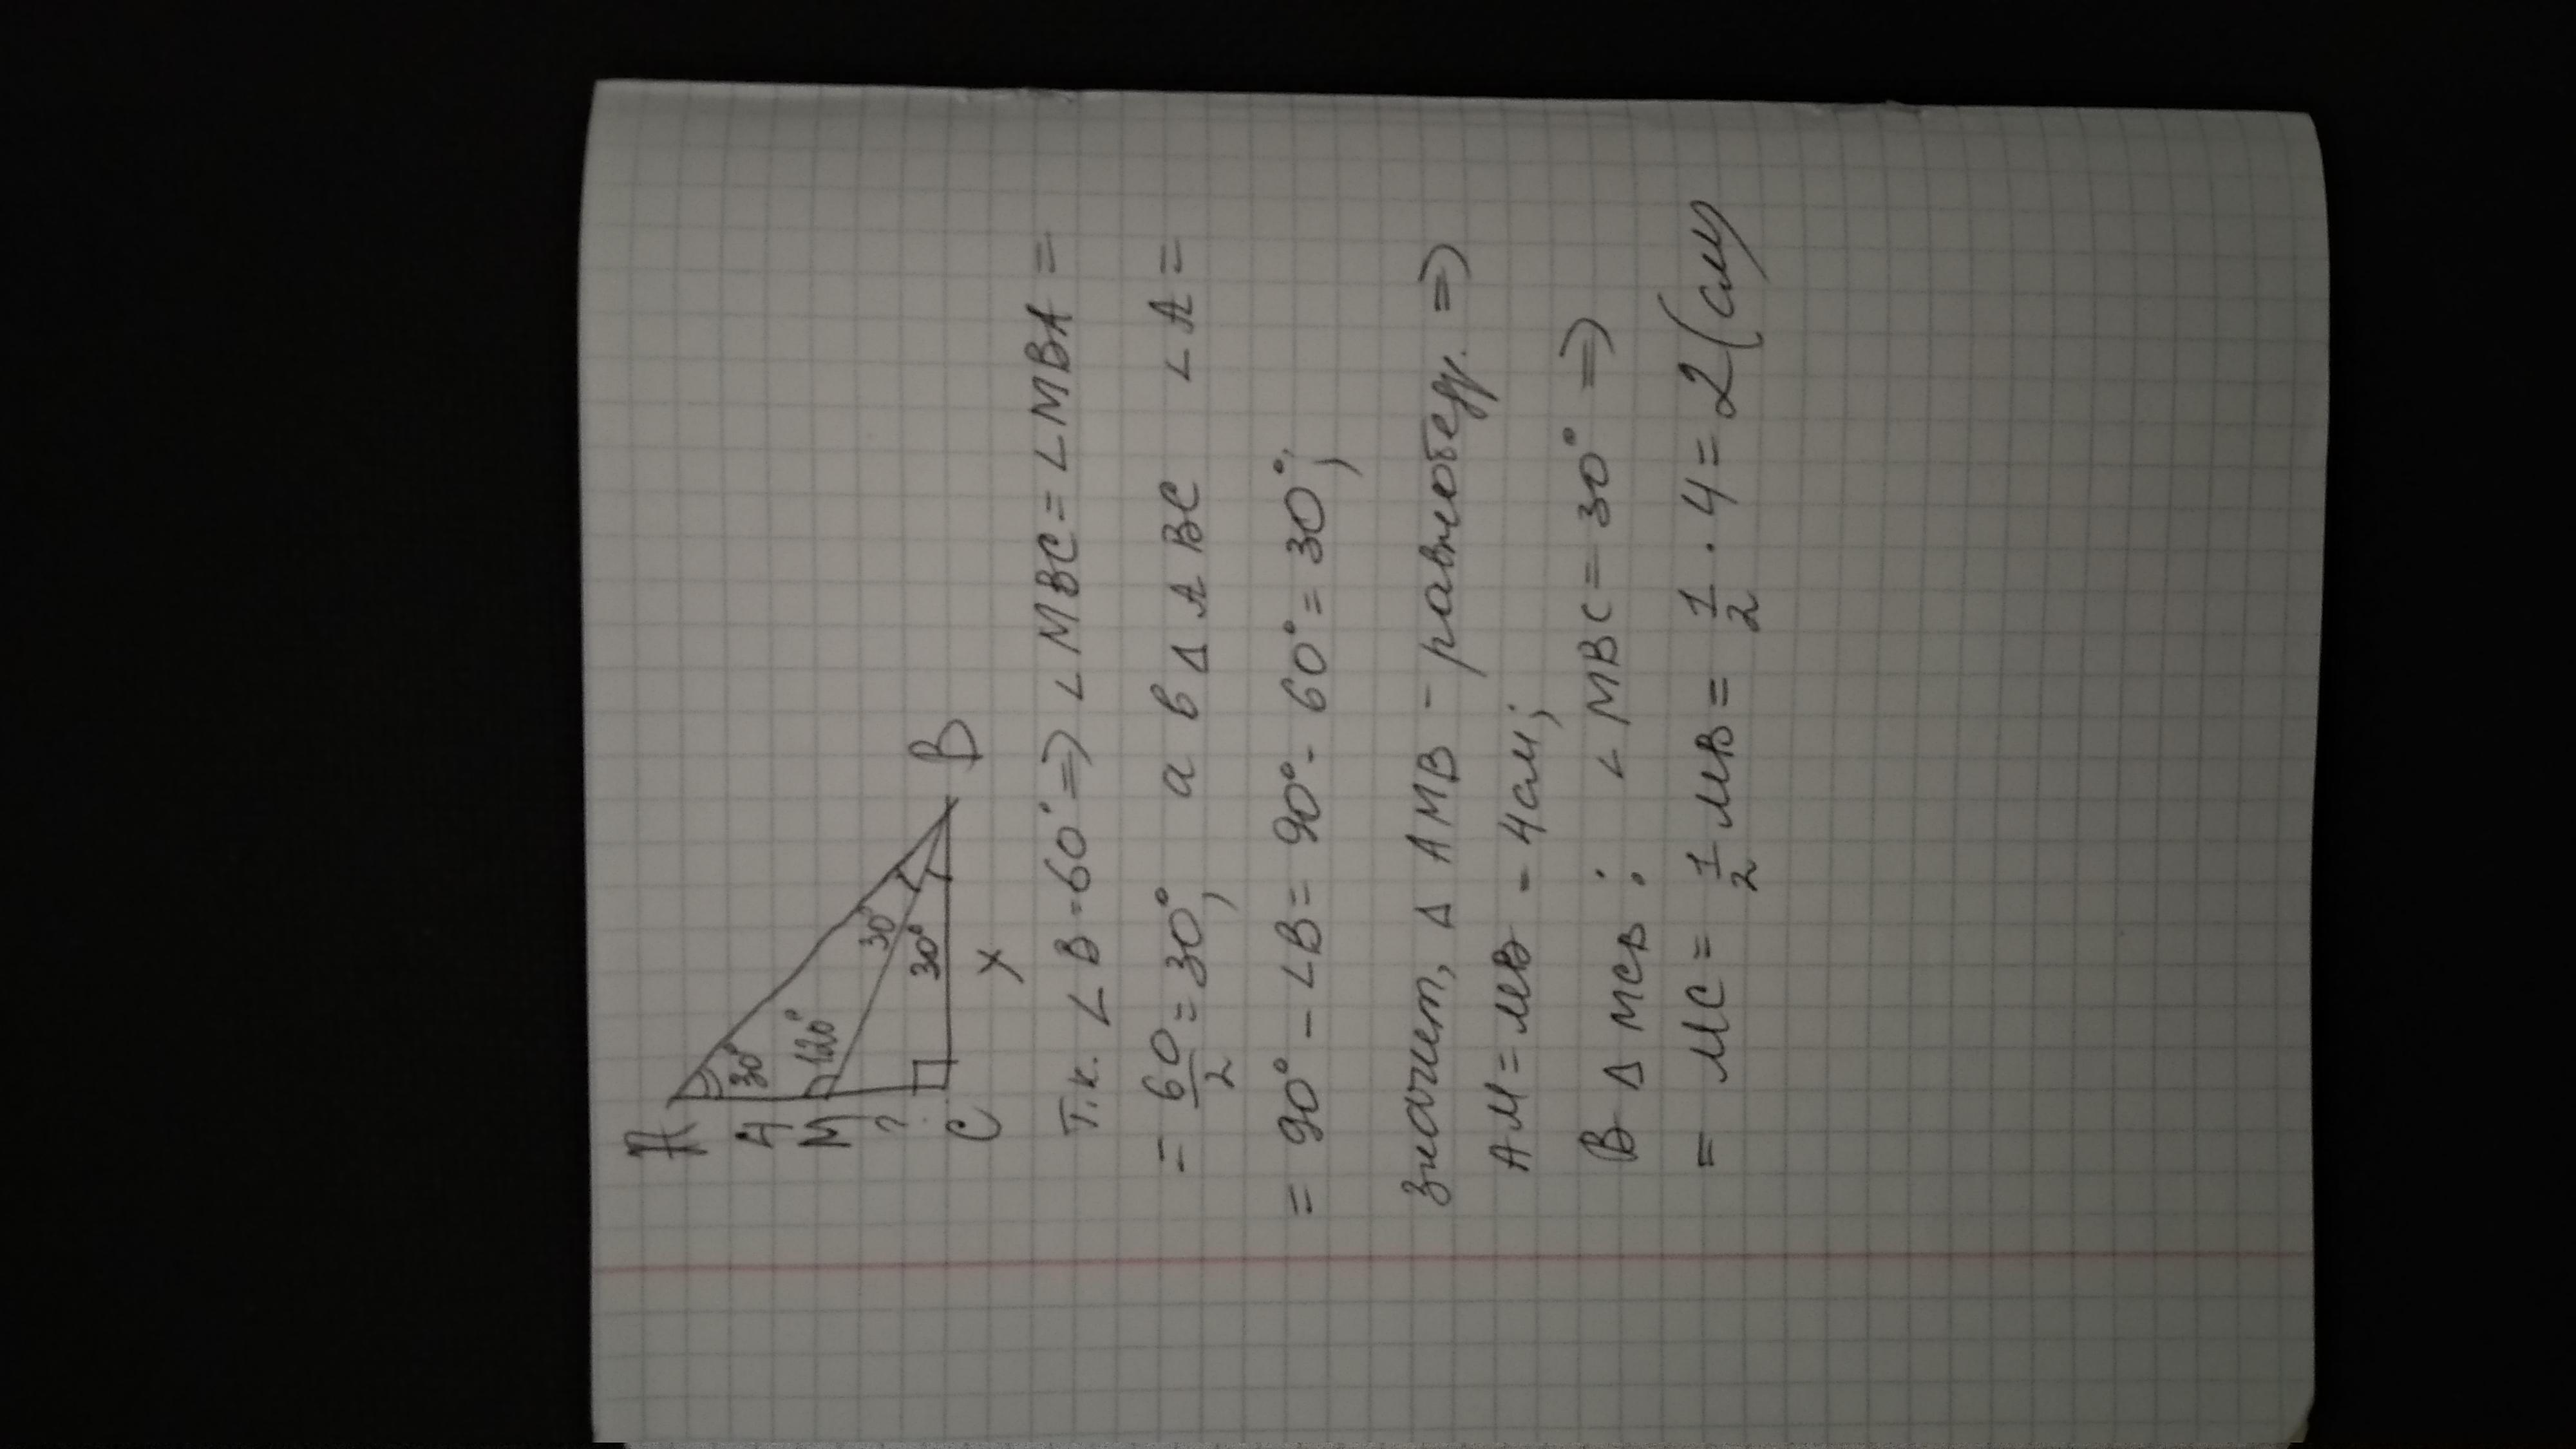 A
4
M
?
C
30°
120°
30°
30°
x
B
Т.к. ∠B=60° => ∠MBC = ∠MBA =
= 60/2 = 30°, а в Δ ABC ∠A =
= 90° - ∠B = 90° - 60° = 30°;
значит, Δ AMB - равнобедр. =>
AM = MB - 4см;
В Δ MCB : ∠ MBC = 30° =>
= MC = 1/2 MB = 1/2 · 4 = 2(см)